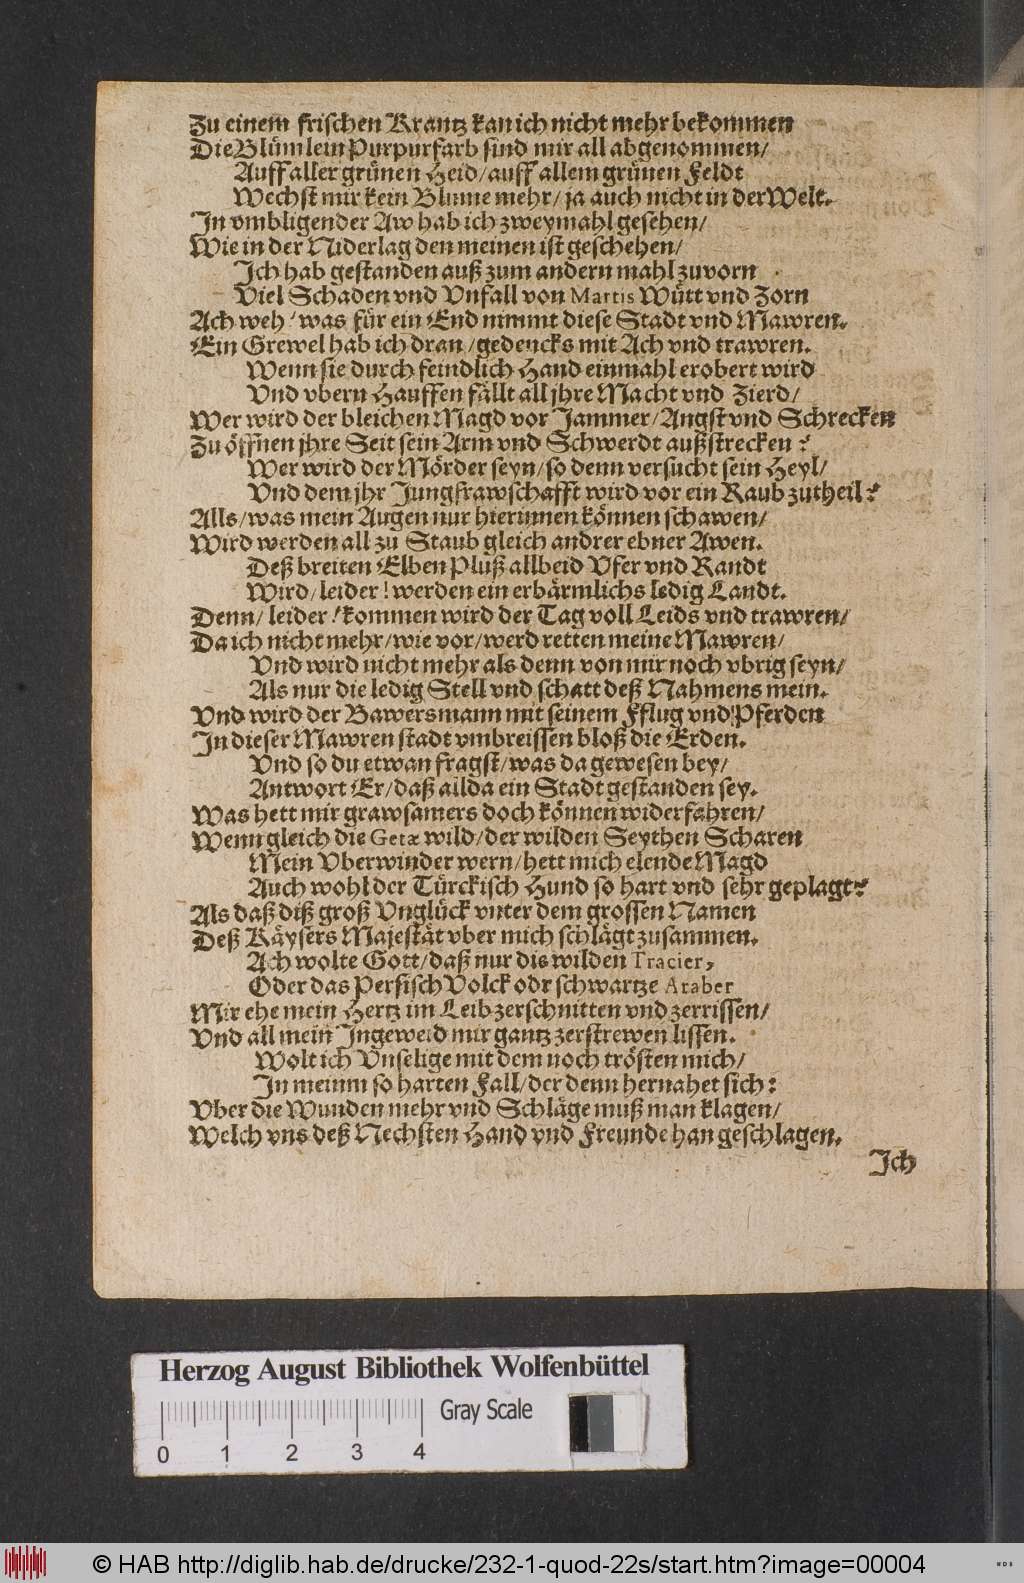 Zu einem frischen Krantz kan ich nicht mehr bekommen
Die Blümlein Purpurfarb sind mir all abgenommen/
Auff aller grünen Heid/ auff allem grünen Feldt
Wechst mir kein Blume mehr/ ja auch nicht in der Welt.
In vmbligender Aw hab ich zweymahl gesehen/
Wie in der Niderlag den meinen ist geschehen/
Ich hab gestanden auß zum andern mahl zuvorn
Viel Schaden vnd Vnfall von Martis Wütt vnd Zorn
Ach weh! was für ein End nimmt diese Stadt vnd Mawren.
Ein Grewel hab ich dran/ gedencks mit Ach vnd trawren.
Wenn sie durch feindlich Hand einmahl erobert wird
Vnd vbern Hauffen fällt all jhre Macht vnd Zierd/
Wer wird der bleichen Magd vor Jammer/ Angst vnd Schrecken
Zu öffnen jhre Seit sein Arm vnd Schwerdt außstrecken?
Wer wird der Mörder seyn/ so denn versucht sein Heyl/
Vnd dem jhr Jungfrawschafft wird vor ein Raub zutheil?
Alls/ was mein Augen nur hierinnen können schawen/
Wird werden all zu Staub gleich andrer ebner Awen.
Deß breiten Elben Pluß allbeid Vfer vnd Randt
Wird/ leider! werden ein erbärmlichs ledig Landt.
Denn/ leider! kommen wird der Tag voll Leids vnd trawren/
Da ich nicht mehr/ wie vor/ werd retten meine Mawren/
Vnd wird nicht mehr als denn von mir noch vbrig seyn/
Als nur die ledig Stell vnd schatt deß Nahmens mein.
Vnd wird der Bawersmann mit seinem Fflug vnd Pferden
In dieser Mawren stadt vmbreissen bloß die Erden.
Vnd so du etwan fragst/ was da gewesen bey/
Antwort Er/ daß allda ein Stadt gestanden sey.
Was hett mir grawsamers doch können widerfahren/
Wenn gleich die Getæ wild/ der wilden Seythen Scharen
Mein Vberwinder wern/ hett mich elende Magd
Auch wohl der Türckisch Hund so hart vnd sehr geplagt?
Als daß diß groß Vnglück vnter dem grossen Namen
Deß Käysers Majestät vber mich schlägt zusammen.
Ach wolte Gott/ daß nur dis wilden Tracier,
Oder das Persisch Volck odr schwartze Araber
Mir ehe mein Hertz im Leib zerschnitten vnd zerrissen/
Vnd all mein Ingeweid mir gantz zerstrewen lissen.
Wolt ich Vnselige mit dem noch trösten mich/
In meinm so harten Fall/ der denn hernahet sich:
Vber die Wunden mehr vnd Schläge muß man klagen/
Welch vns deß Nechsten Hand vnd Freunde han geschlagen.
Ich
Herzog August Bibliothek Wolfenbüttel
Gray Scale
0 1 2 3 4
© HAB http://diglib.hab.de/drucke/232-1-quod-22s/start.htm?image=00004
WDB